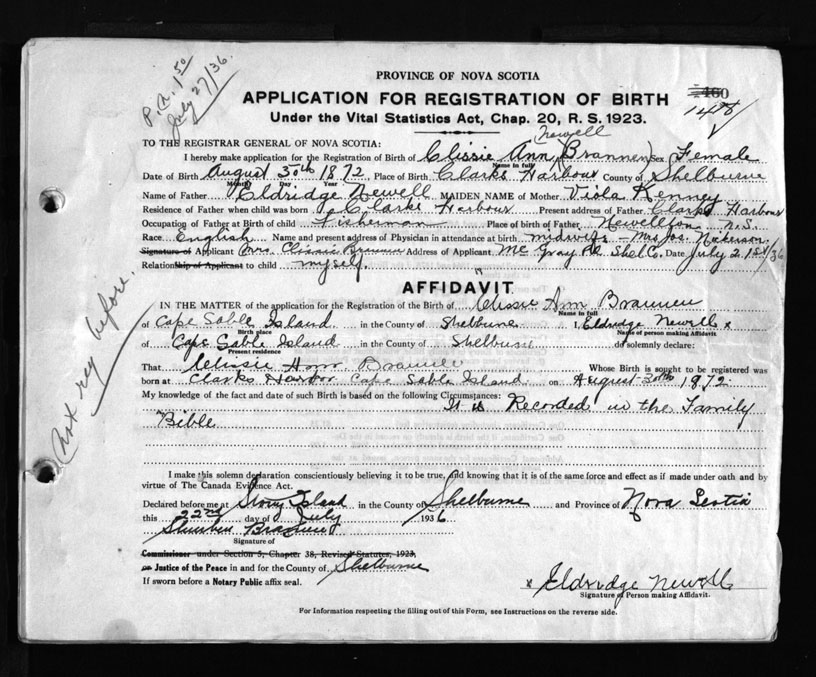 P.A. 1 50
July 27/36.
PROVINCE OF NOVA SCOTIA
460
APPLICATION FOR REGISTRATION OF BIRTH
148
Under the Vital Statistics Act, Chap. 20, R. S. 1923.
TO THE REGISTRAR GENERAL OF NOVA SCOTIA:
Newell
I hereby make application for the Registration of Birth of Clissie Ann (Brannen) Sex Female
Name in full
Date of Birth August 30th 1872 Place of Birth Clarks Harbour County of Shelburne
Month Day Year
Name of Father Eldridge Newell MAIDEN NAME of Mother Viola Kenney
Residence of Father when child was born Clarks Harbour Present address of Father Clarks Harbour
Occupation of Father at Birth of child Fisherman Place of birth of Father Newellton N.S.
Race English Name and present address of Physician in attendance at birth midwife - Mrs Jos. Nickerson
Signature of Applicant Mrs. Clissie Brannen Address of Applicant McGray Shel Co. Date July 21st/36
Relationship of Applicant to child myself.
AFFIDAVIT
IN THE MATTER of the application for the Registration of the Birth of Clissie Ann Brannen
Name in full
of Cape Sable Island in the County of Shelburne I, Eldridge Newell x
Birth place Name of person making Affidavit
of Cape Sable Island in the County of Shelburne do solemnly declare:
Present residence
That Clissie Ann Brannen Whose Birth is sought to be registered was
born at Clarks Harbor Cape Sable Island on August 30th 1872.
My knowledge of the fact and date of such Birth is based on the following Circumstances:
It is Recorded in the Family
Bible
Not reg before.
I make this solemn declaration conscientiously believing it to be true, and knowing that it is of the same force and effect as if made under oath and by
virtue of The Canada Evidence Act.
Declared before me at Stony Island in the County of Shelburne and Province of Nova Scotia
this 22nd day of July 1936
Brannen
Signature of
Commissioner under Section 5, Chapter 38, Revised Statutes, 1923,
or Justice of the Peace in and for the County of Shelburne
If sworn before a Notary Public affix seal.
x Eldridge Newell
Signature of Person making Affidavit.
For Information respecting the filling out of this Form, see Instructions on the reverse side.